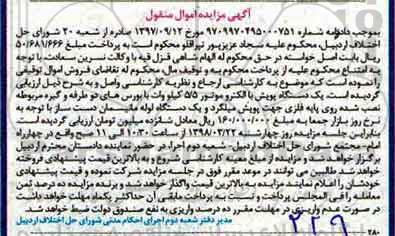 آگهی مزایده اموال منقول
بموجب دادنامه شماره ۹۷۰۹۹۷۰۴۹۵۰۰۰۷۵۱ مورخ ۱۳۹۷/۰۹/۱۲ صادره از شعبه ۲۰ شورای حل
اختلاف اردبیل، محکوم علیه سجاد عزیزپور تیرافلو محکوم است به پرداخت مبلغ ۵۰/۶۸۱/۶۶۶
ریال بابت اصل خواسته در حق محکوم له الهام شاهی قنزل قیه با وکالت نسرین سعادت، با توجه
به امتناع محکوم علیه از پرداخت محکوم به و توقیف مال، محکوم له تقاضای فروش اموال توقیفی
را نموده است که موضوع به کارشناسی ارجاع و نظریه کارشناسی واصل و به شرح ذیل ارزیابی
گردیده است: یک دستگاه پویش با الکترو موتور ۵/۵ کیلو وات با بورس های دو طرفه و گیره مربوطه
نصب شده روی پایه فلزی جهت پویش میلگرد و یک دستگاه لوله مانیسمان دست ساز با توجه به
نرخ روز بازار جمعا به مبلغ ۱۶۰/۰۰۰/۰۰۰ ریال معادل شانزده میلیون تومان ارزیابی گردیده است.
بنابراین جلسه مزایده روز چهارشنبه ۱۳۹۸/۰۳/۲۲ از ساعت ۱۰:۳۰ الی ۱۱ صبح واقع در چهارراه
امام- مجتمع شورای حل اختلاف اردبیل- شعبه دوم اجرا، در حضور نماینده دادستان محترم اردبیل
برگزار خواهد شد و مزایده از مبلغ معینه کارشناسی شروع و به بالاترین قیمت پیشنهادی فروخته
خواهد شد طالبین می توانند در موعد مقرر فوق در جلسه مزایده شرکت نموده و قیمت پیشنهادی
خودشان را اعلام نمایند مزایده به بالاترین قیمت واگذار خواهد شد و برنده مزایده ده درصد ثمن
معامله را فی المجلس پرداخت و نسبت به پرداخت مابقی آن حداکثر یکماه مهلت خواهد داشت
در صورت عدم واریزی در مهلت مقرر ده درصد واریزی به نفع صندوق دولت ضبط خواهد شد.
مدیر دفتر شعبه دوم اجرای احکام مدنی شورای حل اختلاف اردبیل
۲۸۰
۲۲۹